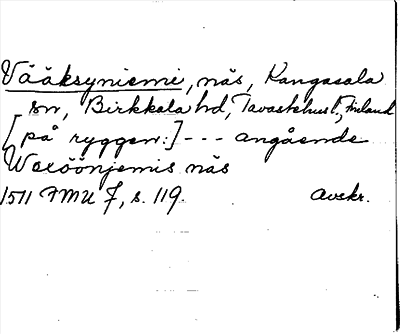 Vääksyniemi, näs, Kangasala
sn, Birkkala hd, Tavastehus l, Finland
[på ryggen:] --- angående
Wexöönjemis näs
1511 FMU 7, s. 119. Avskr.